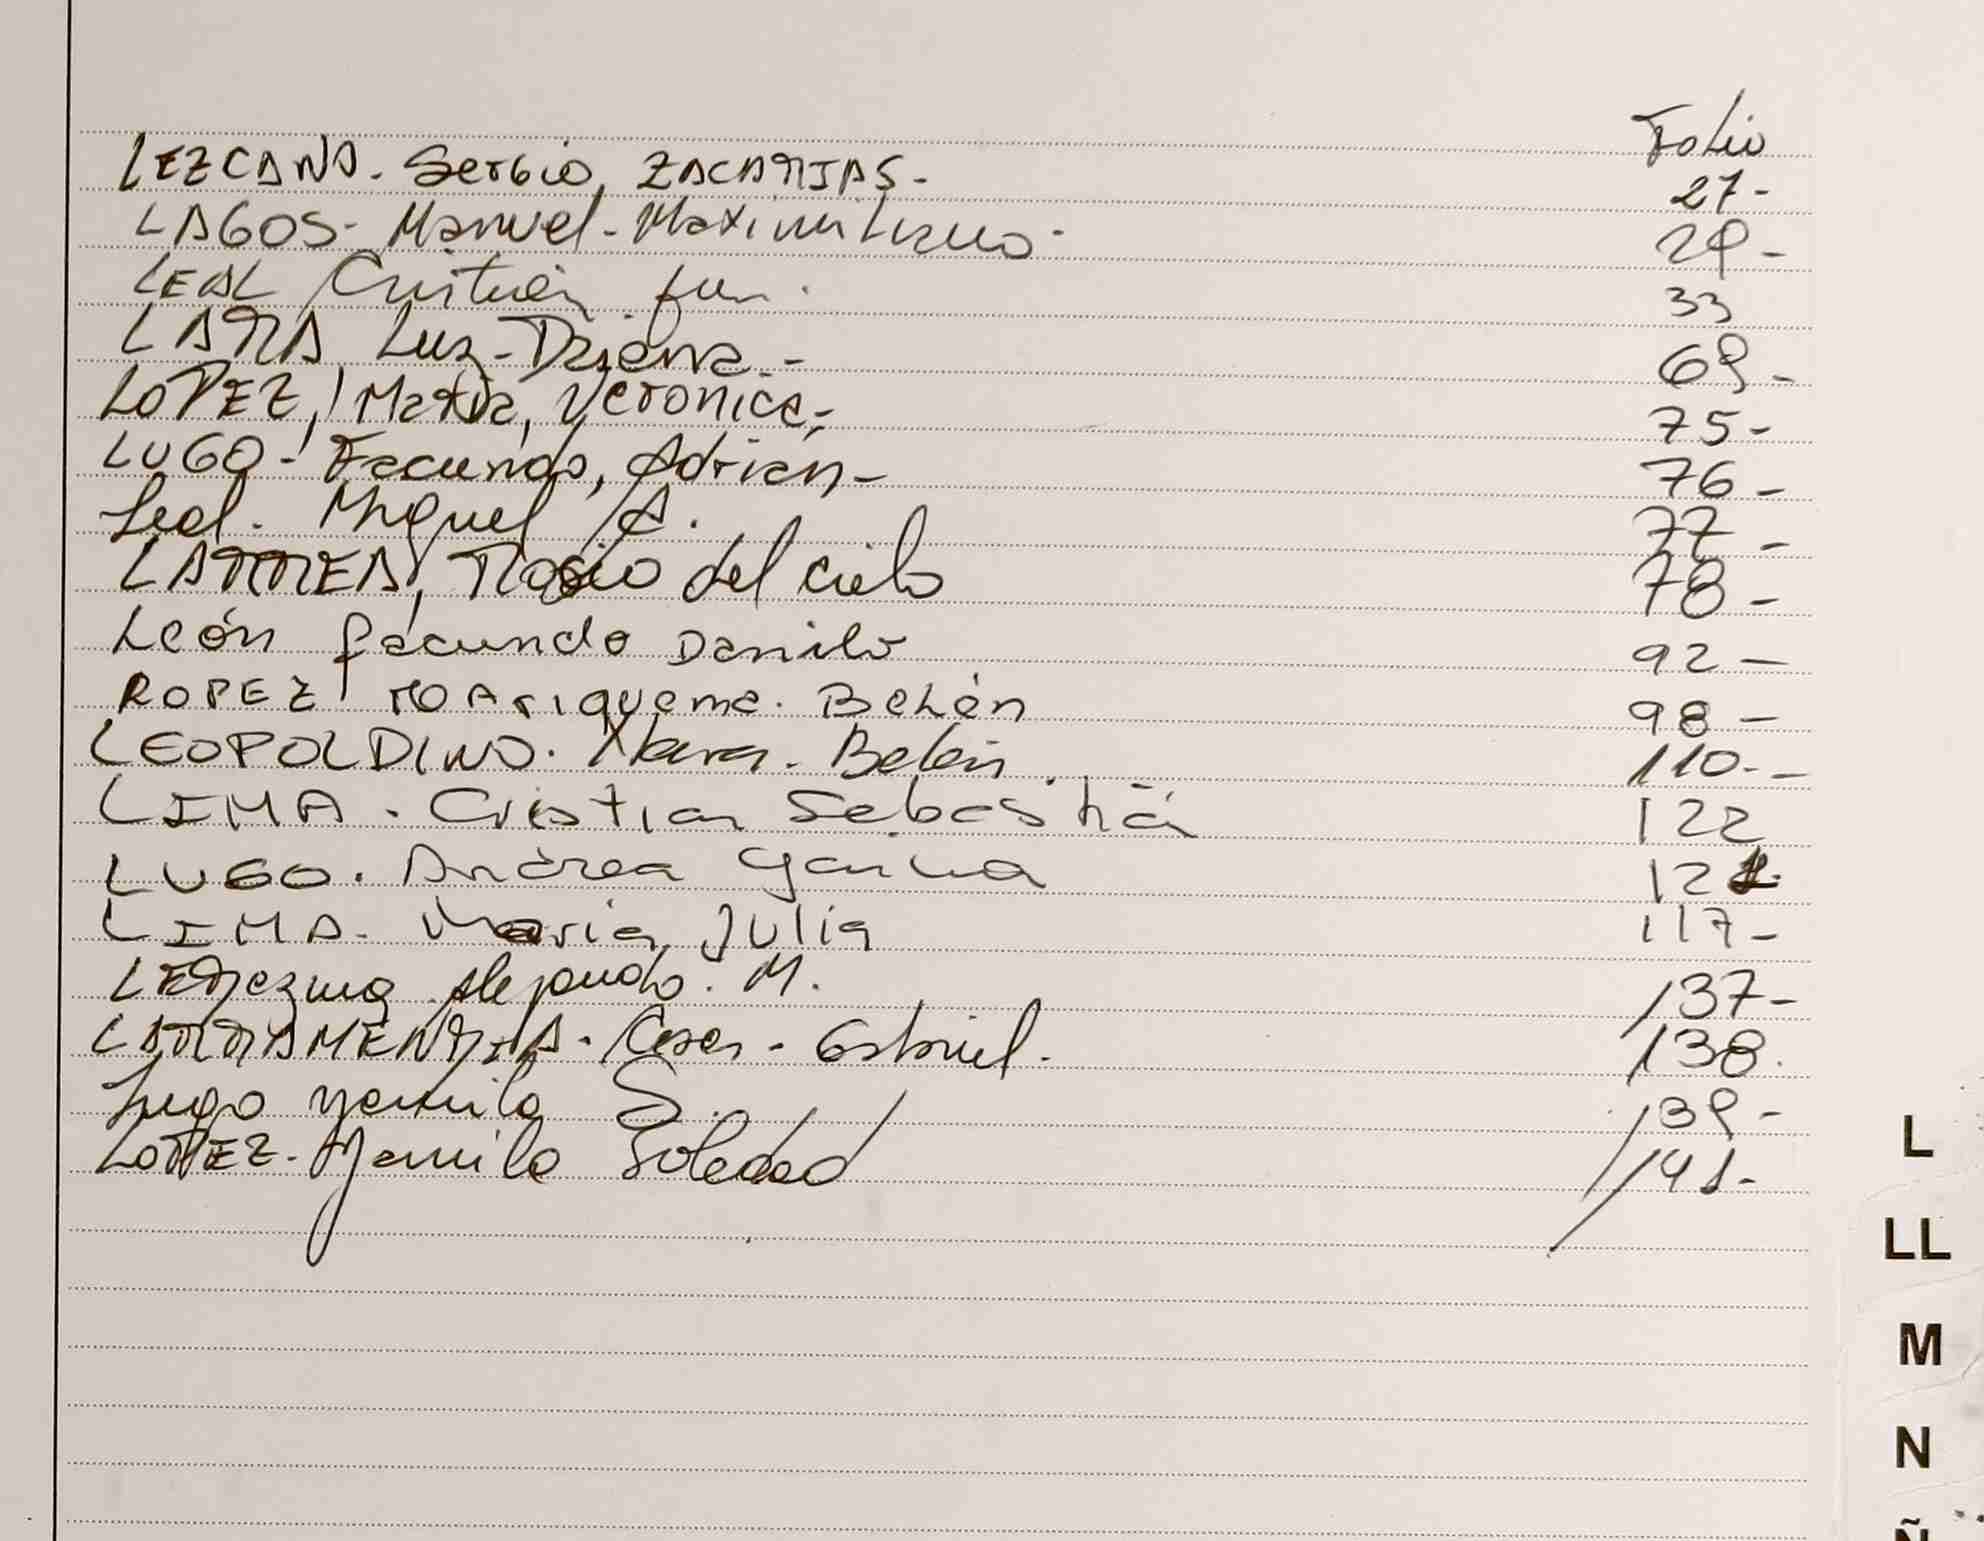 Folio
LEZCANO. Sergio, ZACARIAS. 27-
LAGOS- Manuel- Maximiliano- 29-
LEAL Cristian Juan. 33
LARA Luz-Daiana.- 69-
LOPEZ, Maria, Veronica,- 75-
LUGO- Facundo, Adrián- 76-
Leal. Miguel A. 77-
LARREA, Rocio del cielo 78-
León facundo Danilo 92-
ROPEZ Belén 98-
LEOPOLDINO. Belén. 110.-
LIMA. Cristian Sebastián 122
LUGO. Andrea 121.
LIMA. Maria Julia 117-
LEDEZMA Alejandro. M. 137-
LARRAMENDIA. Cesar- Gabriel. 138.
Lugo Yamila S. 139-
LOPEZ- Yamila Soledad 141-
L
LL
M
N
Ñ